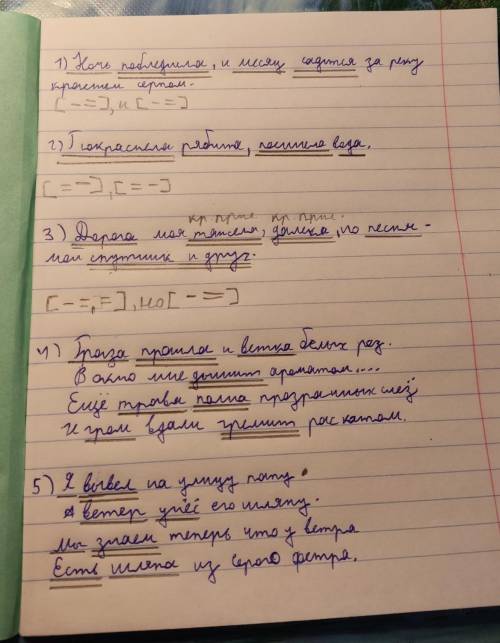 1) Ночь побледнела, и месяц садится за реку
красным серпом.
[ - = ], и [ - = ]
2) Покраснела рябина, посинела вода.
[ = - ], [ = - ]
кр. прил. кр. прил.
3) Дорога моя тяжела, далека, но песня -
мой спутник и друг.
[ - =, = ], но [ - = ]
4) Гроза прошла и ветка белых роз.
В окно мне дышит ароматом....
Ещё трава полна прозрачных слёз
И гром вдали гремит раскатом.
5) Я вывел на улицу папу.
А ветер унёс его шляпу.
Мы знаем теперь что у ветра
Есть шляпа из серого фетра.